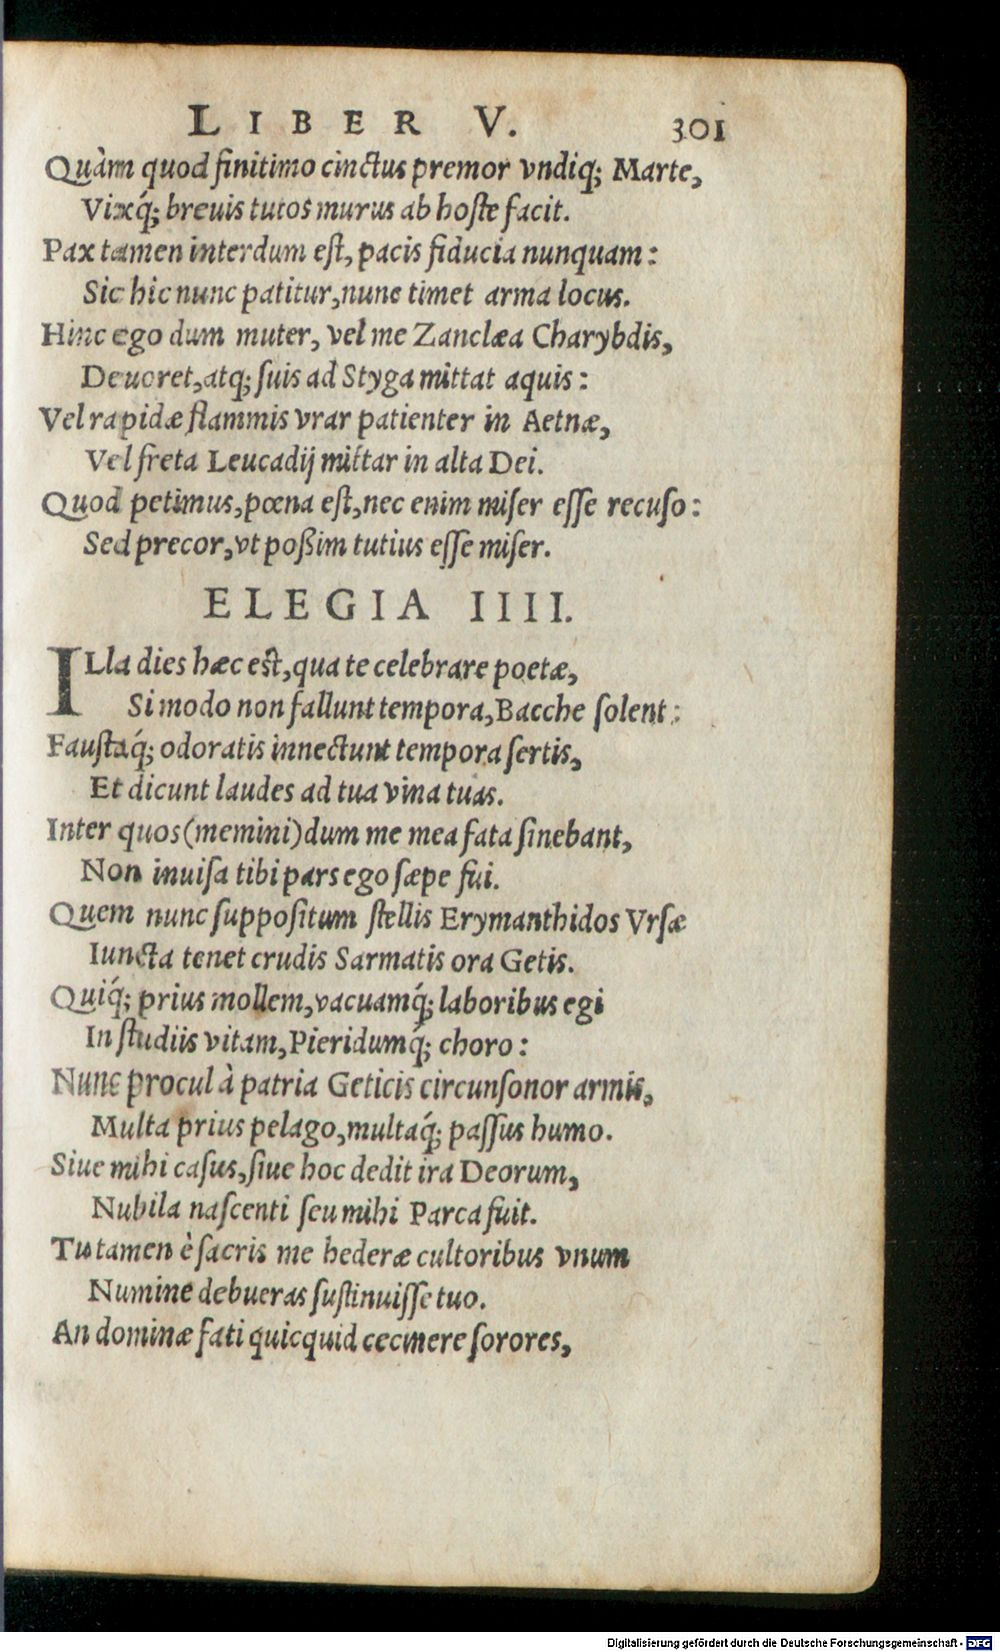 LIBER V. 301
Quàm quod finitimo cinctus premor vndiq; Marte,
Vixq́; breuis tutos murus ab hoſte facit.
Pax tamen interdum eſt, pacis fiducia nunquam:
Sic hic nunc patitur, nunc timet arma locus.
Hinc ego dum muter, vel me Zanclæa Charybdis,
Deuoret, atq; ſuis ad Styga mittat aquis:
Vel rapidæ flammis vrar patienter in Aetnæ,
Vel freta Leucadij mittar in alta Dei.
Quod petimus, pœna eſt, nec enim miſer eſſe recuſo:
Sed precor, vt poßim tutius eſſe miſer.
ELEGIA IIII.
ILla dies hæc eſt, qua te celebrare poetæ,
Si modo non fallunt tempora, Bacche ſolent:
Fauſtaq́; odoratis innectunt tempora ſertis,
Et dicunt laudes ad tua vina tuas.
Inter quos (memini) dum me mea fata ſinebant,
Non inuiſa tibi pars ego ſæpe fui.
Quem nunc ſuppoſitum ſtellis Erymanthidos Vrſæ
Iuncta tenet crudis Sarmatis ora Getis.
Quiq́; prius mollem, vacuamq́; laboribus egi
In ſtudiis vitam, Pieridumq́; choro:
Nunc procul à patria Geticis circunſonor armis,
Multa prius pelago, multaq́; paſſus humo.
Siue mihi caſus, ſiue hoc dedit ira Deorum,
Nubila naſcenti ſeu mihi Parca fuit.
Tu tamen è ſacris me hederæ cultoribus vnum
Numine debueras ſuſtinuiſſe tuo.
An dominæ fati quicquid cecinere ſorores,
Digitalisierung gefördert durch die Deutsche Forschungsgemeinschaft - DFG